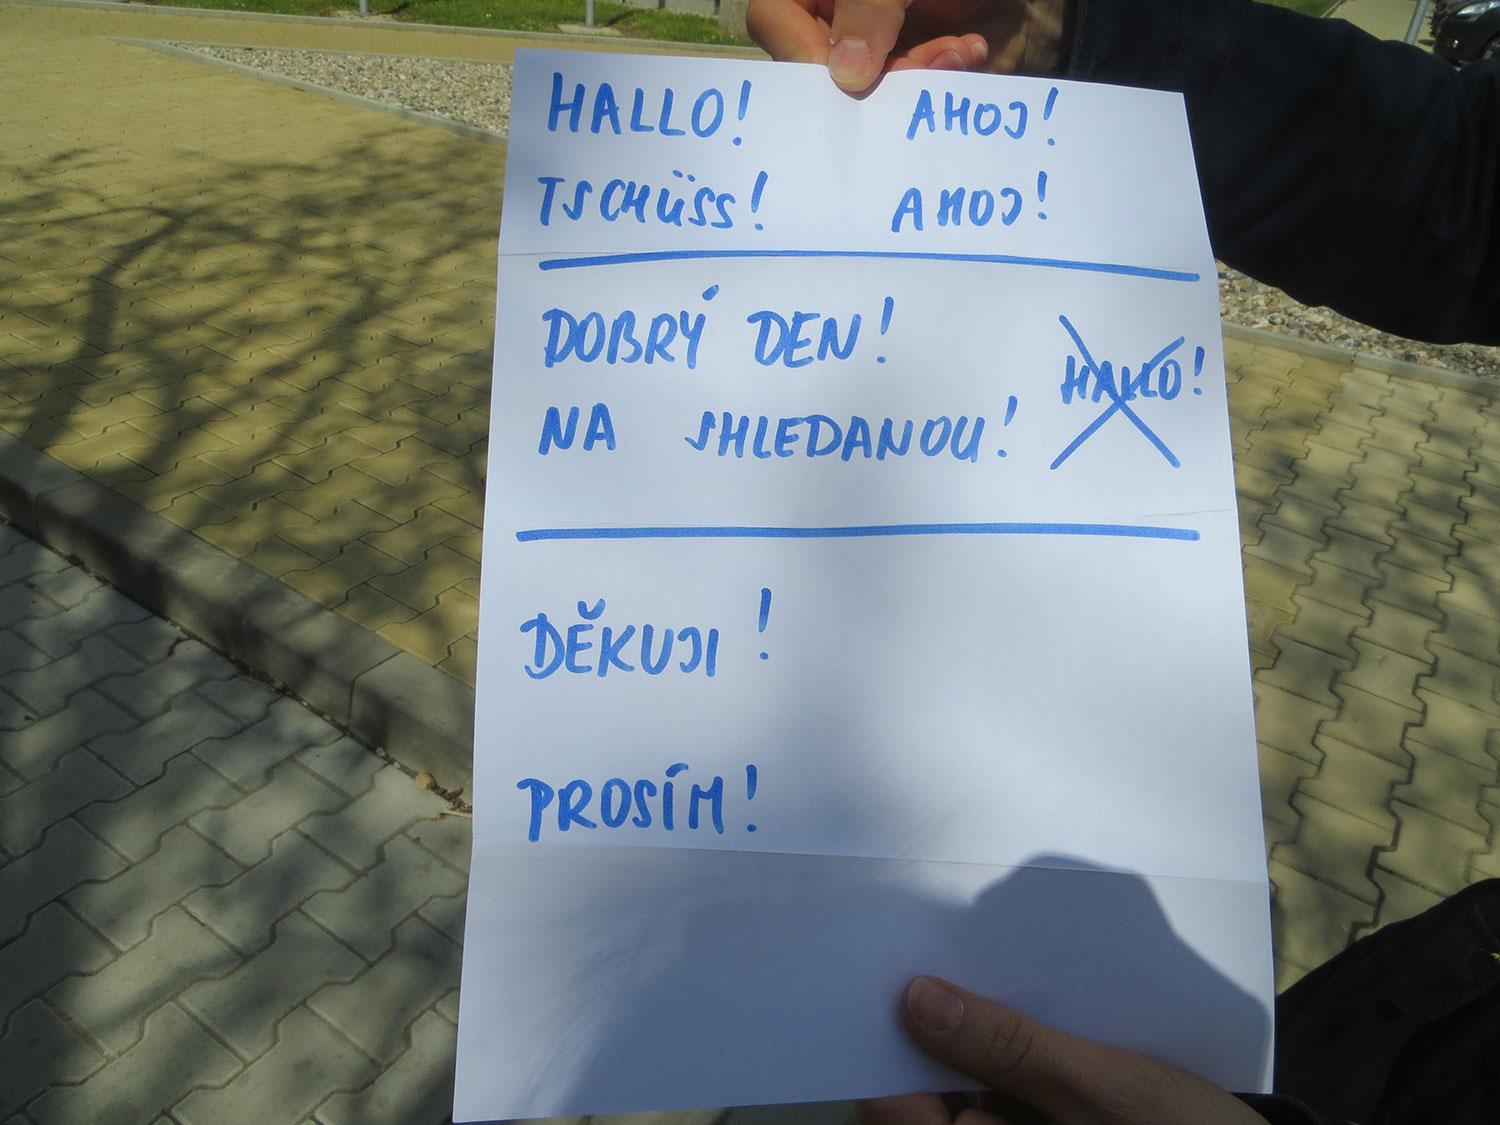 HALLO! AHOJ!
TSCHÜSS! AHOJ!
DOBRÝ DEN!
HALLO!
NA SHLEDANOU!
DĚKUJI!
PROSÍM!